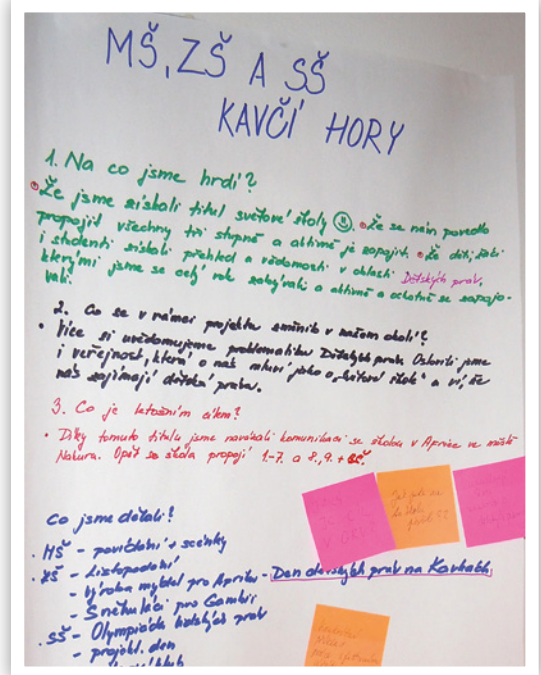 MŠ, ZŠ A SŠ
KAVČÍ HORY
1. Na co jsme hrdí?
Že jsme získali titul světové školy • Že se nám povedlo
propojit všechny tři stupně a aktivně je zapojit. • Že děti, žáci
i studenti získali přehled a vědomosti v oblasti Dětských práv,
kterými jsme se celý rok zabývali a aktivně a ochotně se zapojo-
vali.
2. Co se v rámci projektu změnilo v našem okolí?
• Více si uvědomujeme problematiku Dětských práv. Oslovili jsme
i veřejnost, která o nás mluví jako o „Světové škole" a ví, že
nás zajímají dětská práva.
3. Co je letošním cílem?
• Díky tomuto titulu jsme navázali komunikaci se školou v Africe ve městě
Nakuru. Opět se škola propojí 1.-7. a 8., 9. + SŠ.
Co jsme dělali?
• MŠ - povídání + scénky
• ZŠ - Listopadání
- Výroba mýdel pro Afriku - Den dětských práv na Kavkách
- Sněhuláci pro Gambii
• SŠ - Olympiáda lidských práv
- projekt. den